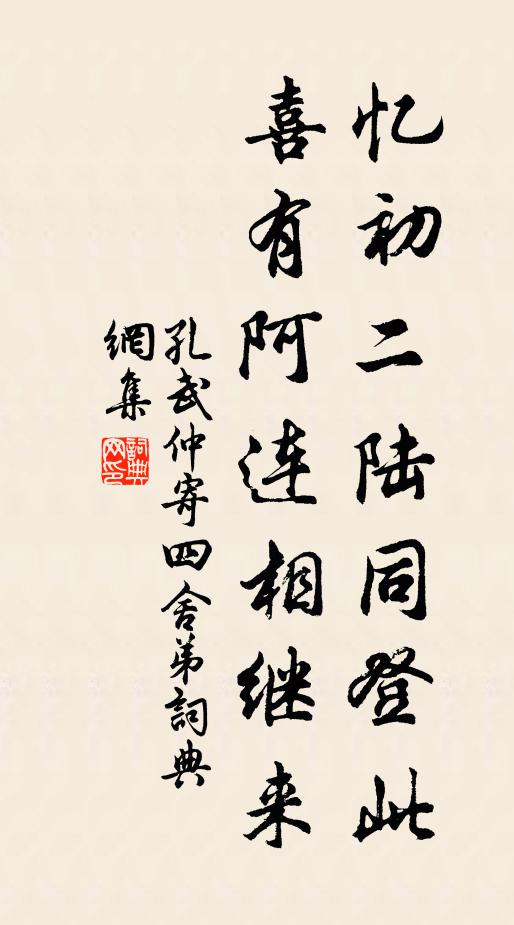 忆初二陆同登此
喜有阿连相继来
孔武仲寄四舍弟詞典
網集
詞典
网印